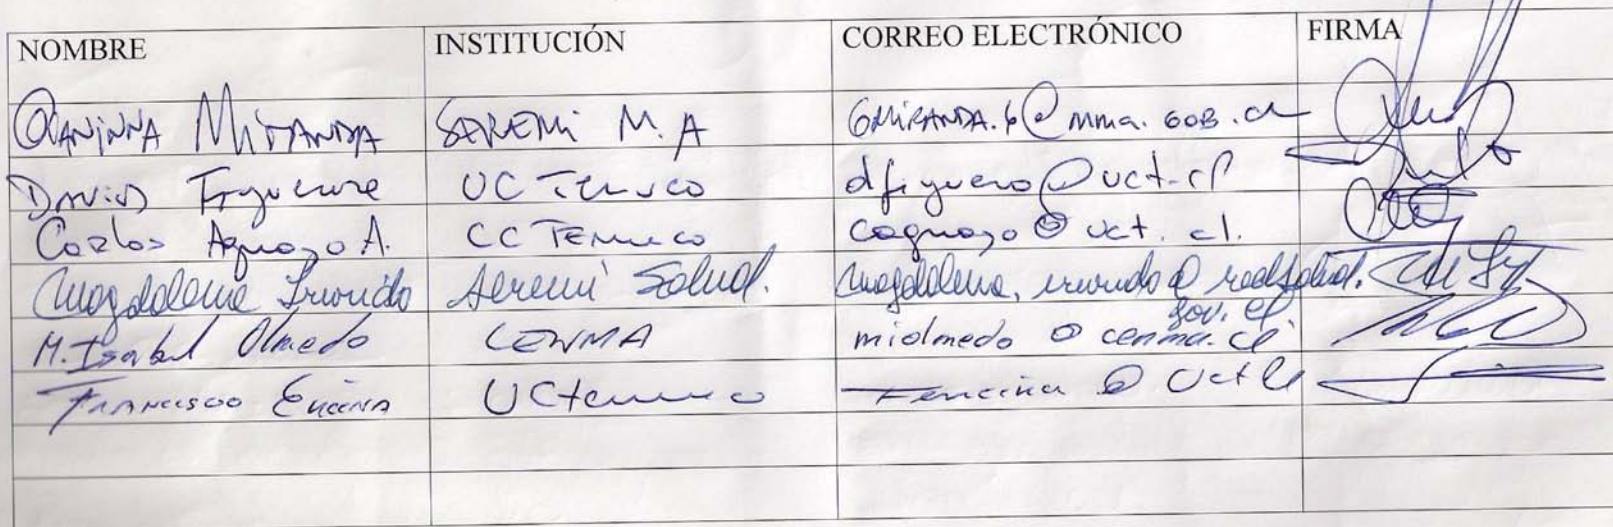 NOMBRE INSTITUCIÓN CORREO ELECTRÓNICO FIRMA
GIANINNA MIRANDA SEREMI M.A GMIRANDA.6@mma.GOB.cl
DAVID Figueroa UC Temuco dfiguero@uct.cl
Carlos Aguayo A. CC TEMUCO caguayo@uct.cl.
Magdalena Iruondo Seremi Salud. Magdalena.iruondo@redsalud.
gov.cl
M. Isabel Olmedo CENMA miolmedo@cenma.cl
FRANCISCO Encina UCtemuco Fencina@Uctcl